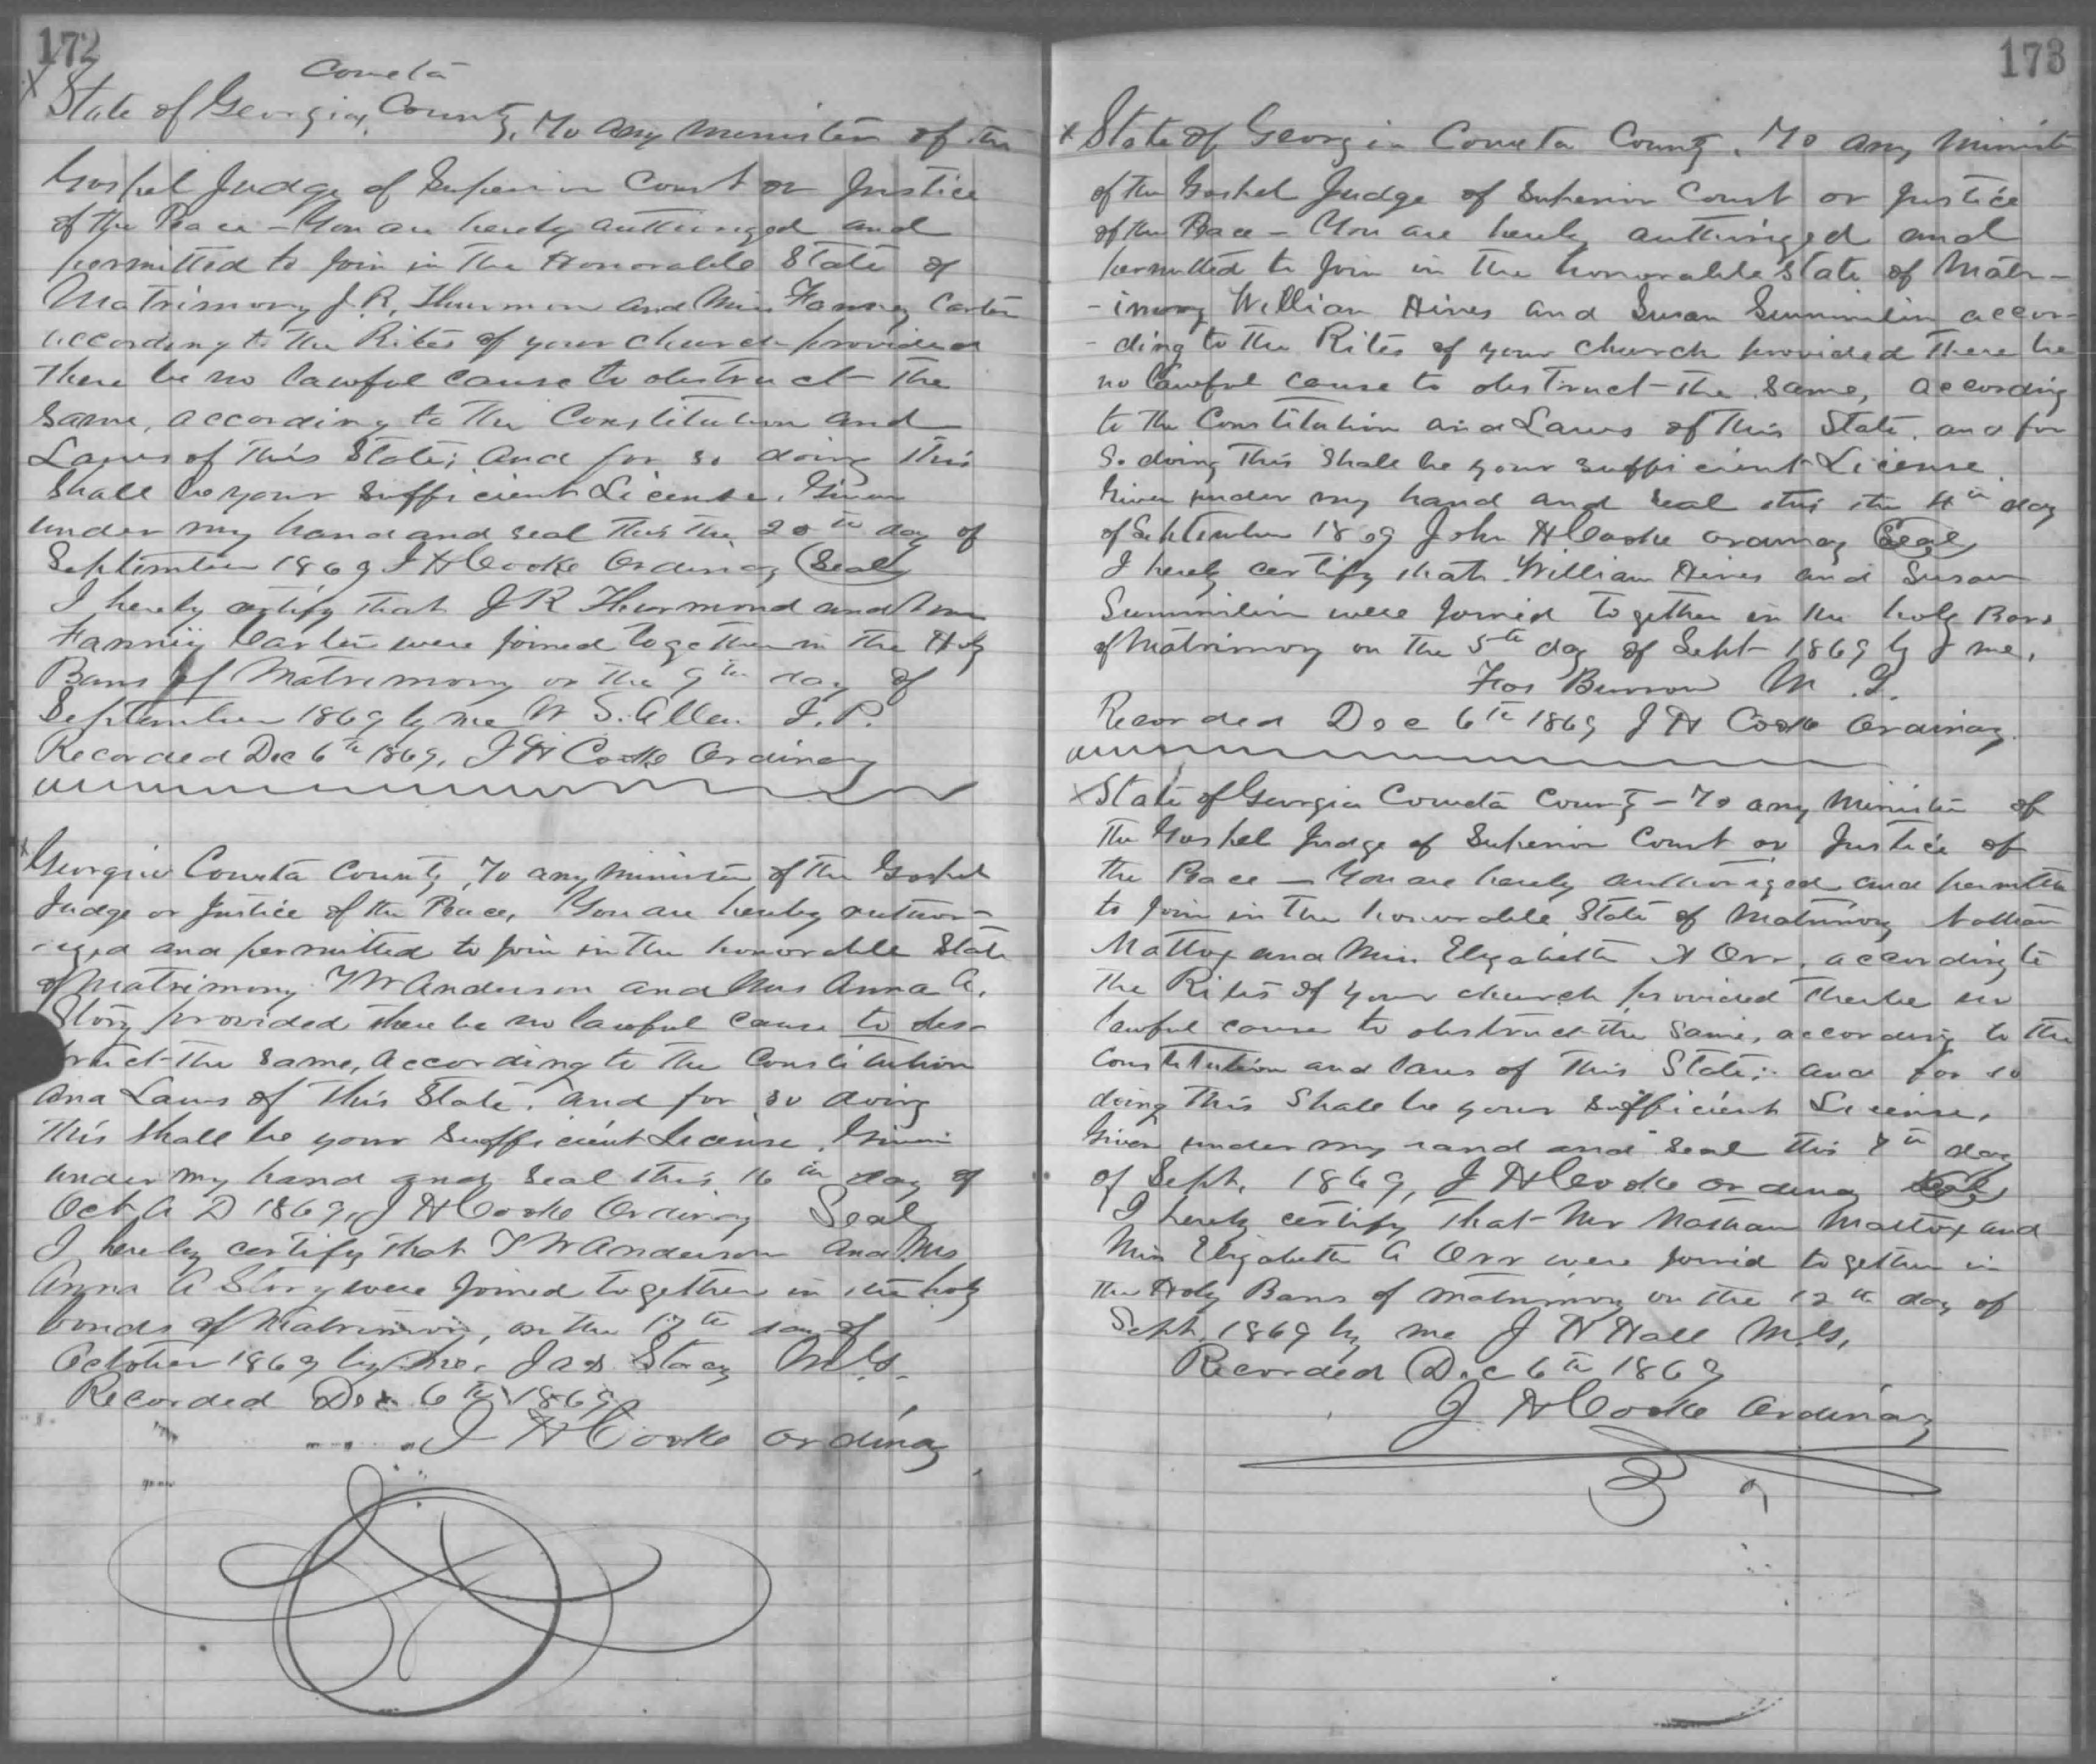 172
Coweta
x State of Georgia, County, To any minister of the
Gospel Judge of Superior Court or Justice
of the Peace – You are hereby authorized and
permitted to Join in the Honorable State of
Matrimony J. R. Thurmon and Miss Fanny Carter
according to the Rites of your church provided
there be no lawful cause to obstruct the
same, according to the Constitution and
Laws of this State; And for so doing this
shall be your sufficient License. Given
under my hand and seal this the 20th day of
September 1869 J H Cooke Ordinary (Seal)
I hereby certify that J R Thurmond and Miss
Fannie Carter were joined together in the Holy
Bans of Matrimony on the 9th day of
September 1869 by me W S. Allen J. P.
Recorded Dec 6th 1869, J H Cooke Ordinary
x Georgia Coweta County, To any minister of the Gospel
Judge or Justice of the Peace, You are hereby author-
ized and permitted to join in the honorable State
of Matrimony T W Anderson and Mrs Anna A.
Story provided there be no lawful cause to obs-
truct the same, according to the Constitution
and Laws of this State. And for so doing
this shall be your sufficient License. Given
under my hand and Seal this 16th day of
Oct A D 1869, J H Cooke Ordinary Seal
I hereby certify that T W Anderson and Mrs
Anna A Story were joined together in the holy
bonds of Matrimony, on the day of
October 1869 by me. Jas Stacy M.G.
Recorded Dec 6th 1869
J H Cooke Ordinary
173
x State of Georgia Coweta County. To any Minister
of the Gospel Judge of Superior Court or Justice
of the Peace – You are hereby authorized and
permitted to Join in the honorable State of Matr-
-imony William Hines and Susan Summilin accor-
- ding to the Rites of your church provided there be
no lawful cause to obstruct the same, according
to the Constitution and Laws of this State. and for
So doing this shall be your sufficient License
Given under my hand and seal this the 4th day
of September 1869 John H Cooke Ordinary (Seal)
I hereby certify that William Hines and Susan
Summilin were Joined together in the holy Bans
of Matrimony on the 5th day of Sept 1869 by me,
Burrow M. G.
Recorded Dec 6th 1869 J H Cooke Ordinary.
x State of Georgia Coweta County – To any Minister of
the Gospel Judge of Superior Court or Justice of
the Peace – You are hereby authorized and permitted
to join in the honorable State of Matrimony Nathan
Mattox and Miss Elizabeth A Orr, according to
the Rites of your church provided there be no
lawful cause to obstruct the same, according to the
Constitution and laws of this State; and for so
doing this Shall be your sufficient License.
Given under my hand and Seal this day
of Sept. 1869, J H Cooke Ordinary Seal
I hereby certify that Mr Nathan Mattox and
Miss Elizabeth A Orr were joined together in
the Holy Bans of Matrimony on the 12th day of
Sept. 1869 by me J H Hall M.G.
Recorded Dec 6th 1869
J H Cooke Ordinary